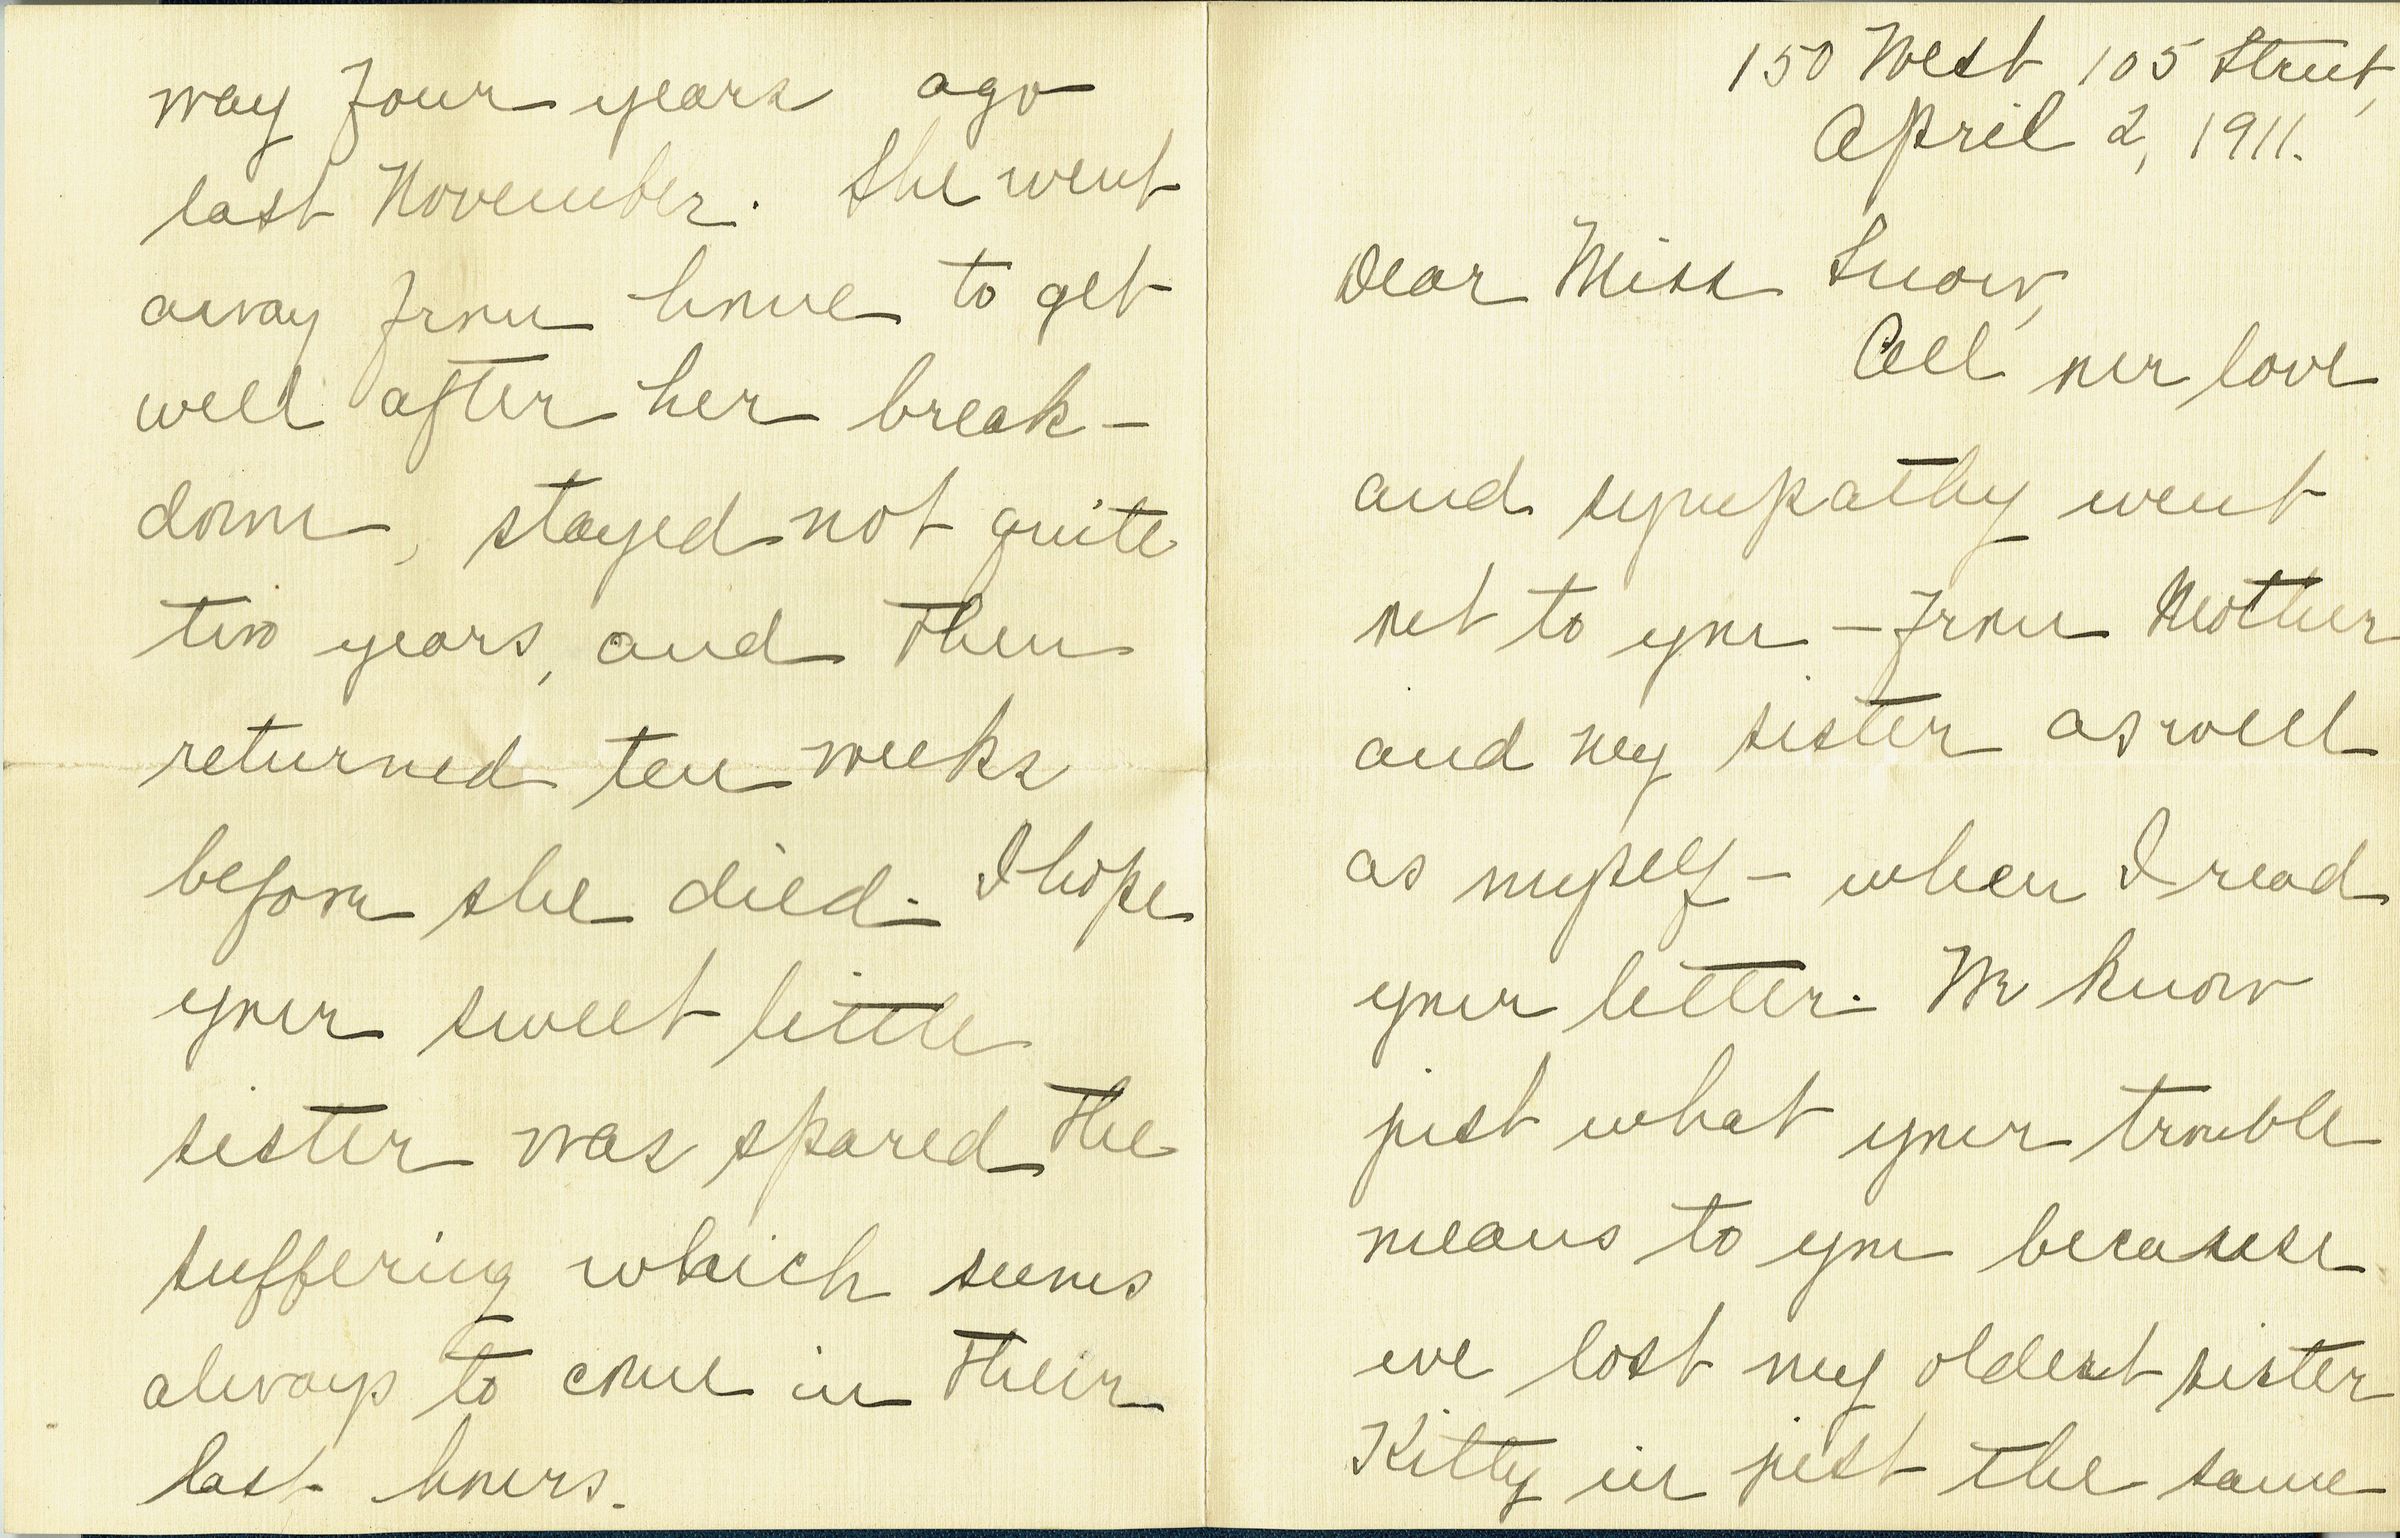 150 West 105 Street,
April 2, 1911.
Dear Miss Snow,
All our love
and sympathy went
out to you – from Mother
and my sister as well
as myself – when I read
your letter. We know
just what your trouble
means to you because
we lost my oldest sister
Kitty in just the same
way four years ago
last November. She went
away from home to get
well after her break-
down, stayed not quite
two years, and then
returned ten weeks
before she died. I hope
your sweet little
sister was spared the
suffering which seems
always to come in their
last hours.